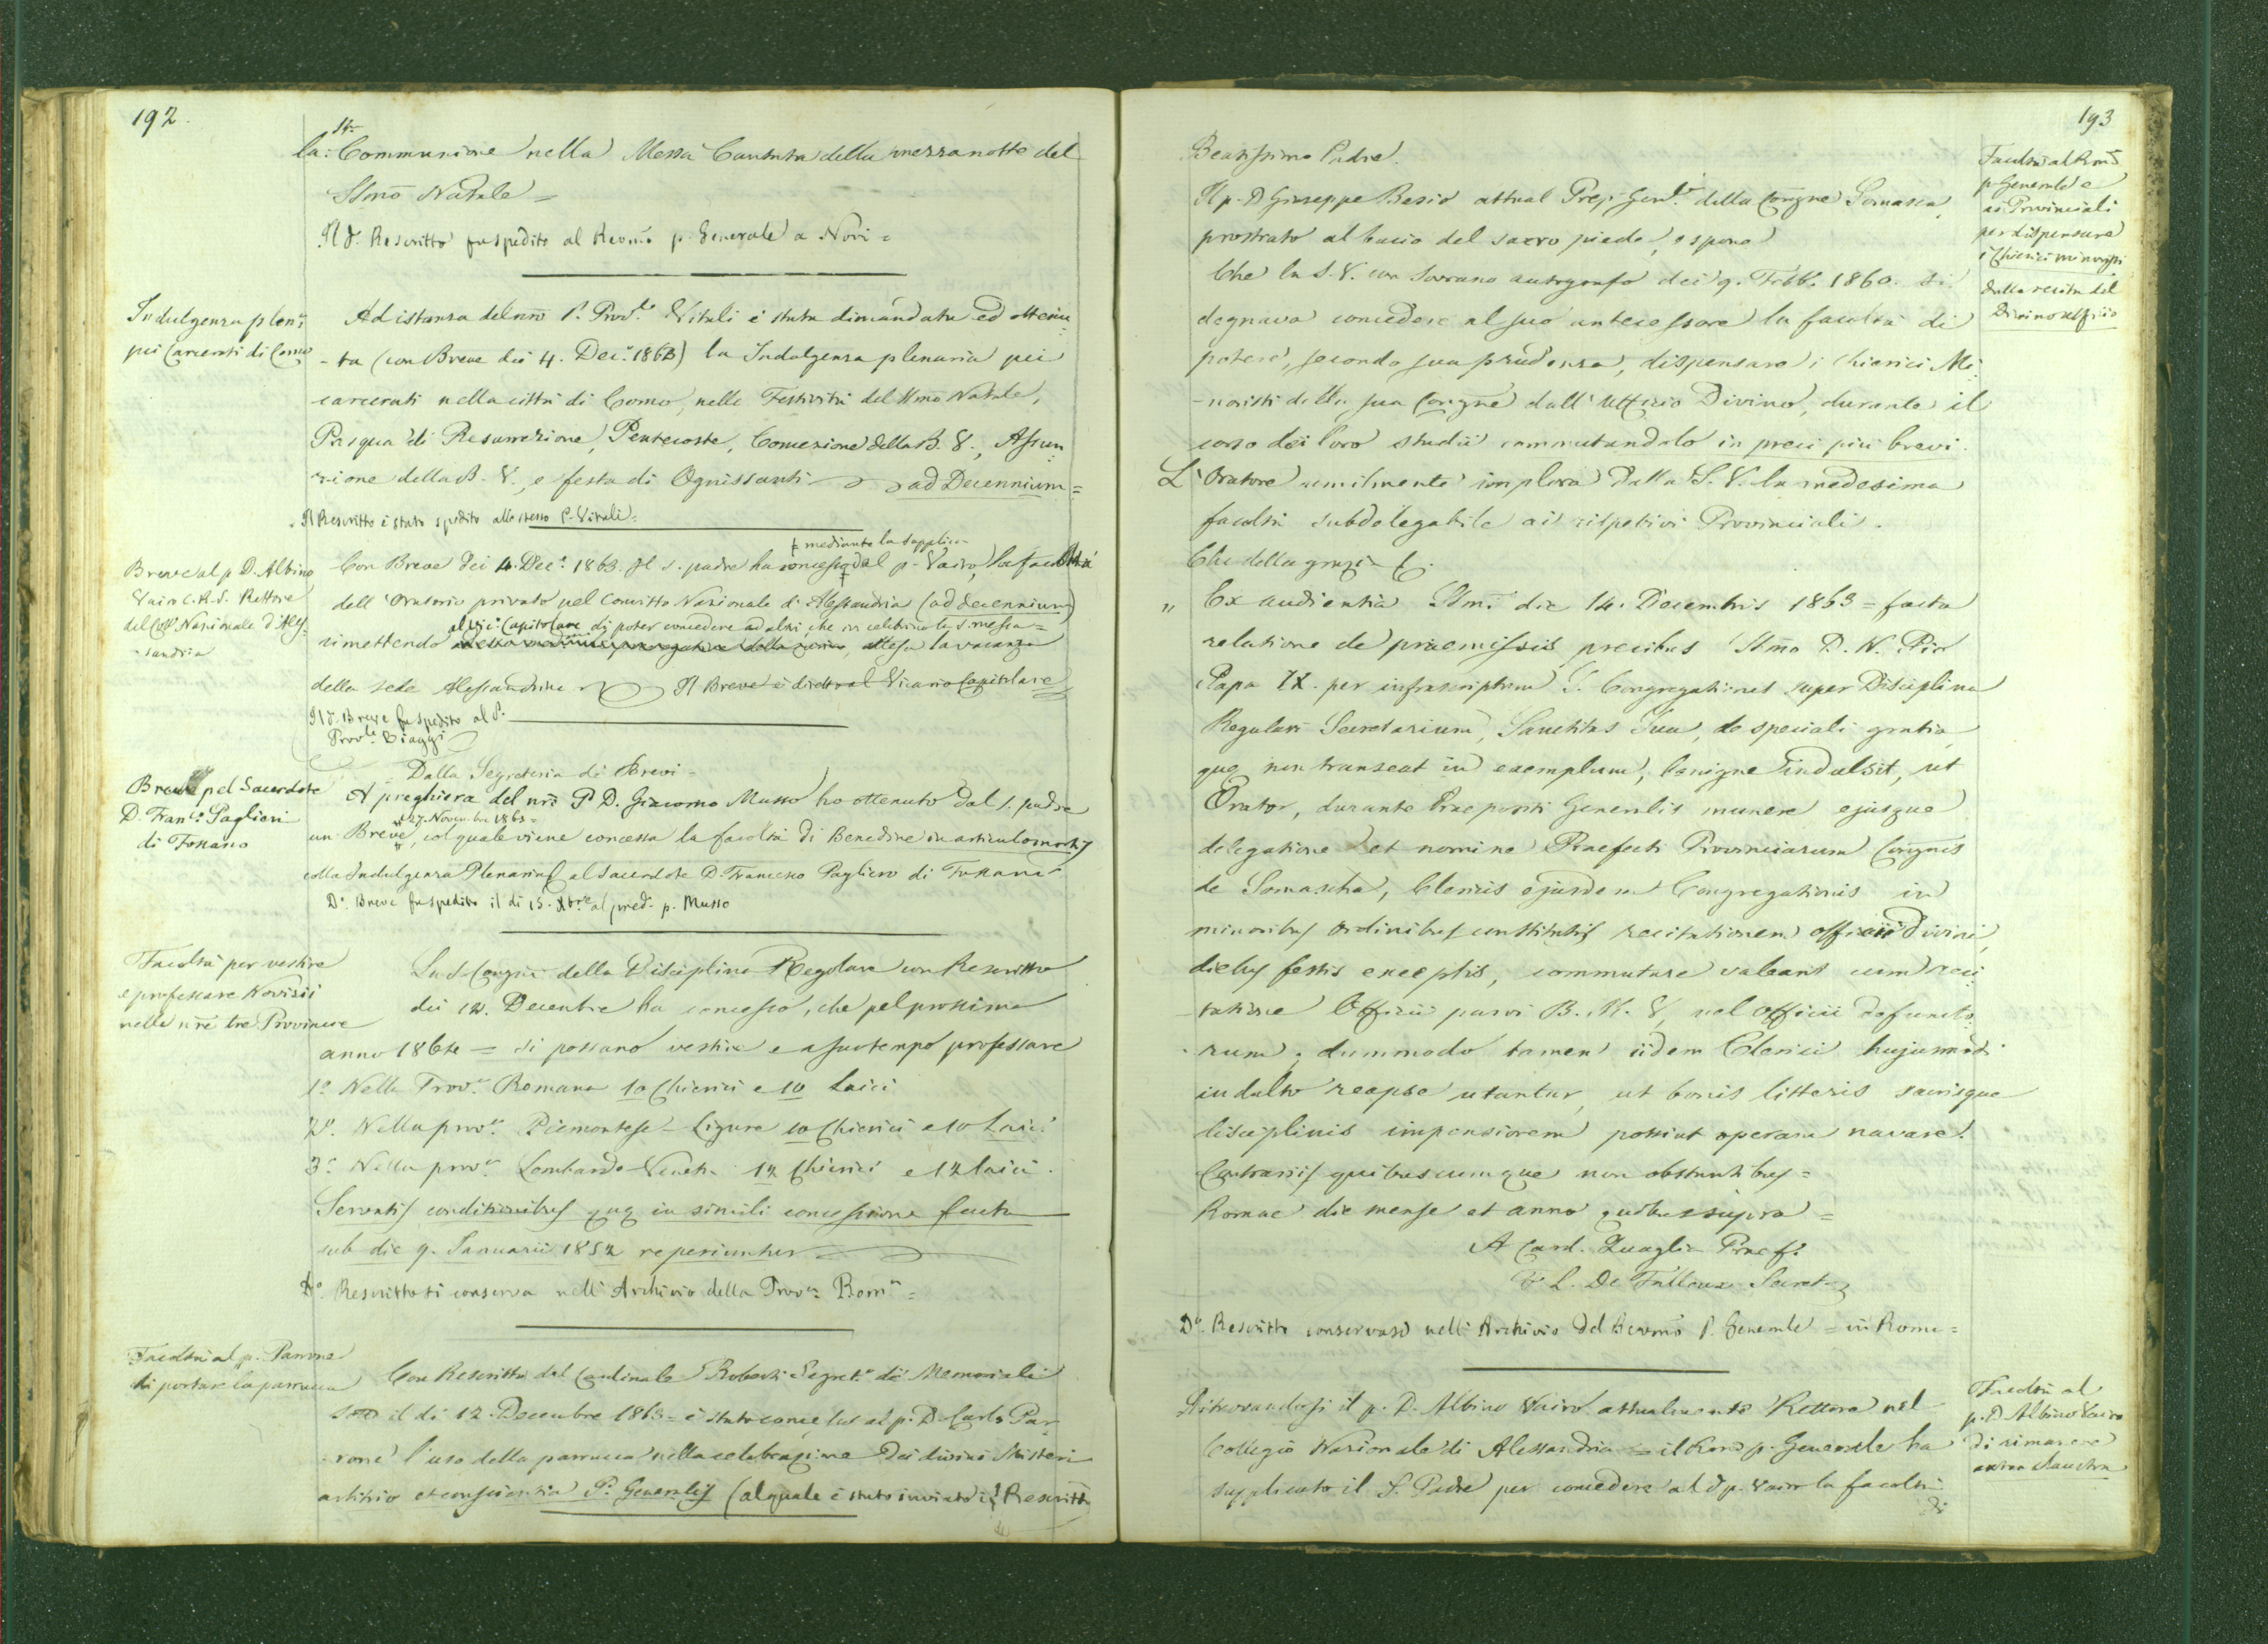 192.
la S. Communione nella Messa Cantata della mezzanotte del
SSmo Natale =
Il d.o Rescritto fu spedito al Revmo p. Generale a Novi =
Indulgenza plen.a
pei Carcerati di Como
Ad istanza del nro P. Prov.le Vitali è stata dimandata ed ottenu-
-ta (con Breve dei 4. Dec.e 1863) la Indulgenza plenaria pei
carcerati nella città di Como, nelle Festività del SSmo Natale,
Pasqua di Resurrezione, Pentecoste, Concezione della B. V., Assun-
zione della B. V., e festa di Ognissanti ad Decennium =
Il Rescritto è stato spedito allo stesso P. Vitali =
Breve al p. D. Albino
Vairo C.R.S. Rettore
del Coll.o Nazionale d'Ales-
-sandria
ǂ mediante la supplica
Con Breve dei 4. Dec.e 1863. Il s. padre ha concesso ǂ al p. Vairo, la facoltà
dell'Oratorio privato nel Convitto Nazionale di Alessandria (ad decennium)
al Vic.o Capitolare di poter concedere ad altri, che vi celebrino la S. messa =
rimettendo attesa la vacanza
della sede Alessandrina Il Breve è diretto al Vicario Capitolare
Il d.o Breve fu spedito al P.
Prov.le Biaggi
Breve pel Sacerdote
D. Fran.o Paglieri
di Fossano
Dalla Segreteria di Brevi =
A preghiera del nro P. D. Giacomo Musso ho ottenuto dal s. padre
27. Novembre 1863 =
un Breve, col quale viene concessa la facoltà di Benedire in articulo mortis
colla Indulgenza Plenaria al Sacerdote D. Francesco Paglieri di Fossano
D.o Breve fu spedito il di 15. Xbre al pred.o p. Musso
Facoltà per vestire
e professare Novizii
nelle nre tre Provincie
La S. Congne della Disciplina Regolare con Rescritto
dei 12. Decembre ha concesso, che pel prossimo
anno 1864 = si possano vestire e a suo tempo professare
1.o Nella Prov.a Romana 10 Chierici e 10 Laici
2.o Nella prov.a Piemontese-Ligure 10 Chierici e 10 Laici
3.o Nella prov.a Lombardo-Veneta 12 Chierici e 12 laici.
Servatis conditionibus quae in simili concessione facta
sub die 9. Januarii 1852 reperiuntur =
D.o Rescritto si conserva nell'Archivio della Prov.a Rom.a =
Facoltà al p. Parone
di portare la parrucca
Con Rescritto del Cardinale Roberti Segret.o de' Memoriali
sotto il di 12. Decembre 1863 = è stato concesso al p. D. Carlo Par-
rone l'uso della parrucca nella celebrazione dei divini Misteri
arbitrio et conscientia P. Generalis (al quale è stato inviato il Rescritto
193
Beatissimo Padre.
Facoltà al Revmo
p. Generale e
ai Provinciali
per dispensare
i Chierici minoristi
dalla recita del
Divino Uffizio
Il p. D. Giuseppe Besio attual Prep. Gen.le della Congne Somasca,
prostrato al bacio del sacro piede, espone
Che la S. V. con Sovrano autografo dei 9. Febb.o 1860. si
degnava concedere al suo antecessore la facoltà di
potere, secondo sua prudenza, dispensare i Chierici Mi-
-noristi della sua Congne dall'Uffizio Divino, durante il
corso dei loro studii commutandolo in preci più brevi.
L'Oratore umilmente implora dalla S. V. la medesima
facoltà subdelegabile ai rispettivi Provinciali.
Che della grazia &.
" Ex audientia SSmi die 14. Decembris 1863 = facta
relatione de praemissis precibus SSmo D. N. Pio
Papa IX. per infrascriptum S. Congregationis super Disciplina
Regulari Secretarium, Sanctitas Sua, de speciali gratia,
quae non transeat in exemplum, benigne indulsit, ut
Orator, durante Praepositi Generalis munere ejusque
delegatione et nomine Praefecti Provinciarum Congnis
de Somascha, Clericis ejusdem Congregationis in
minoribus ordinibus constitutis recitationem officii Divini,
diebus festis exceptis, commutare valeant cum reci-
-tatione Officii parvi B. M. V. vel Officii defuncto-
-rum; dummodo tamen iidem Clerici hujusmodi
indulto reapse utantur, ut bonis litteris sacrisque
disciplinis impensiorem possint operam navare.
Contrariis quibuscumque non obstantibus =
Romae die mense et anno quibus supra =
A Card. Quaglia Praef.
L. De Falloux Secret.
D.o Rescritto conservasi nell'Archivio del Revmo P. Generale = in Roma =
Facoltà al
p. D. Albino Vairo
di rimanere
extra claustra
Ritrovandosi il p. D. Albino Vairo attualmente Rettore nel
Collegio Nazionale di Alessandria = il Revmo p. Generale ha
supplicato il S. Padre per concedere al d.o p. Vairo la facoltà
di